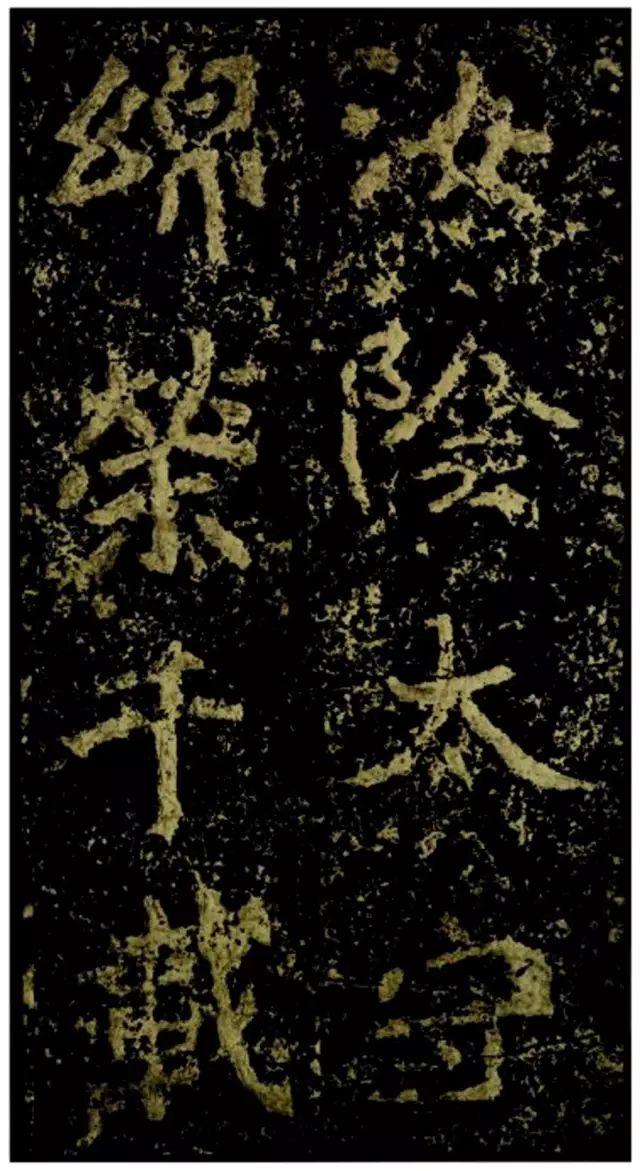 汝陰太守
綿榮千載